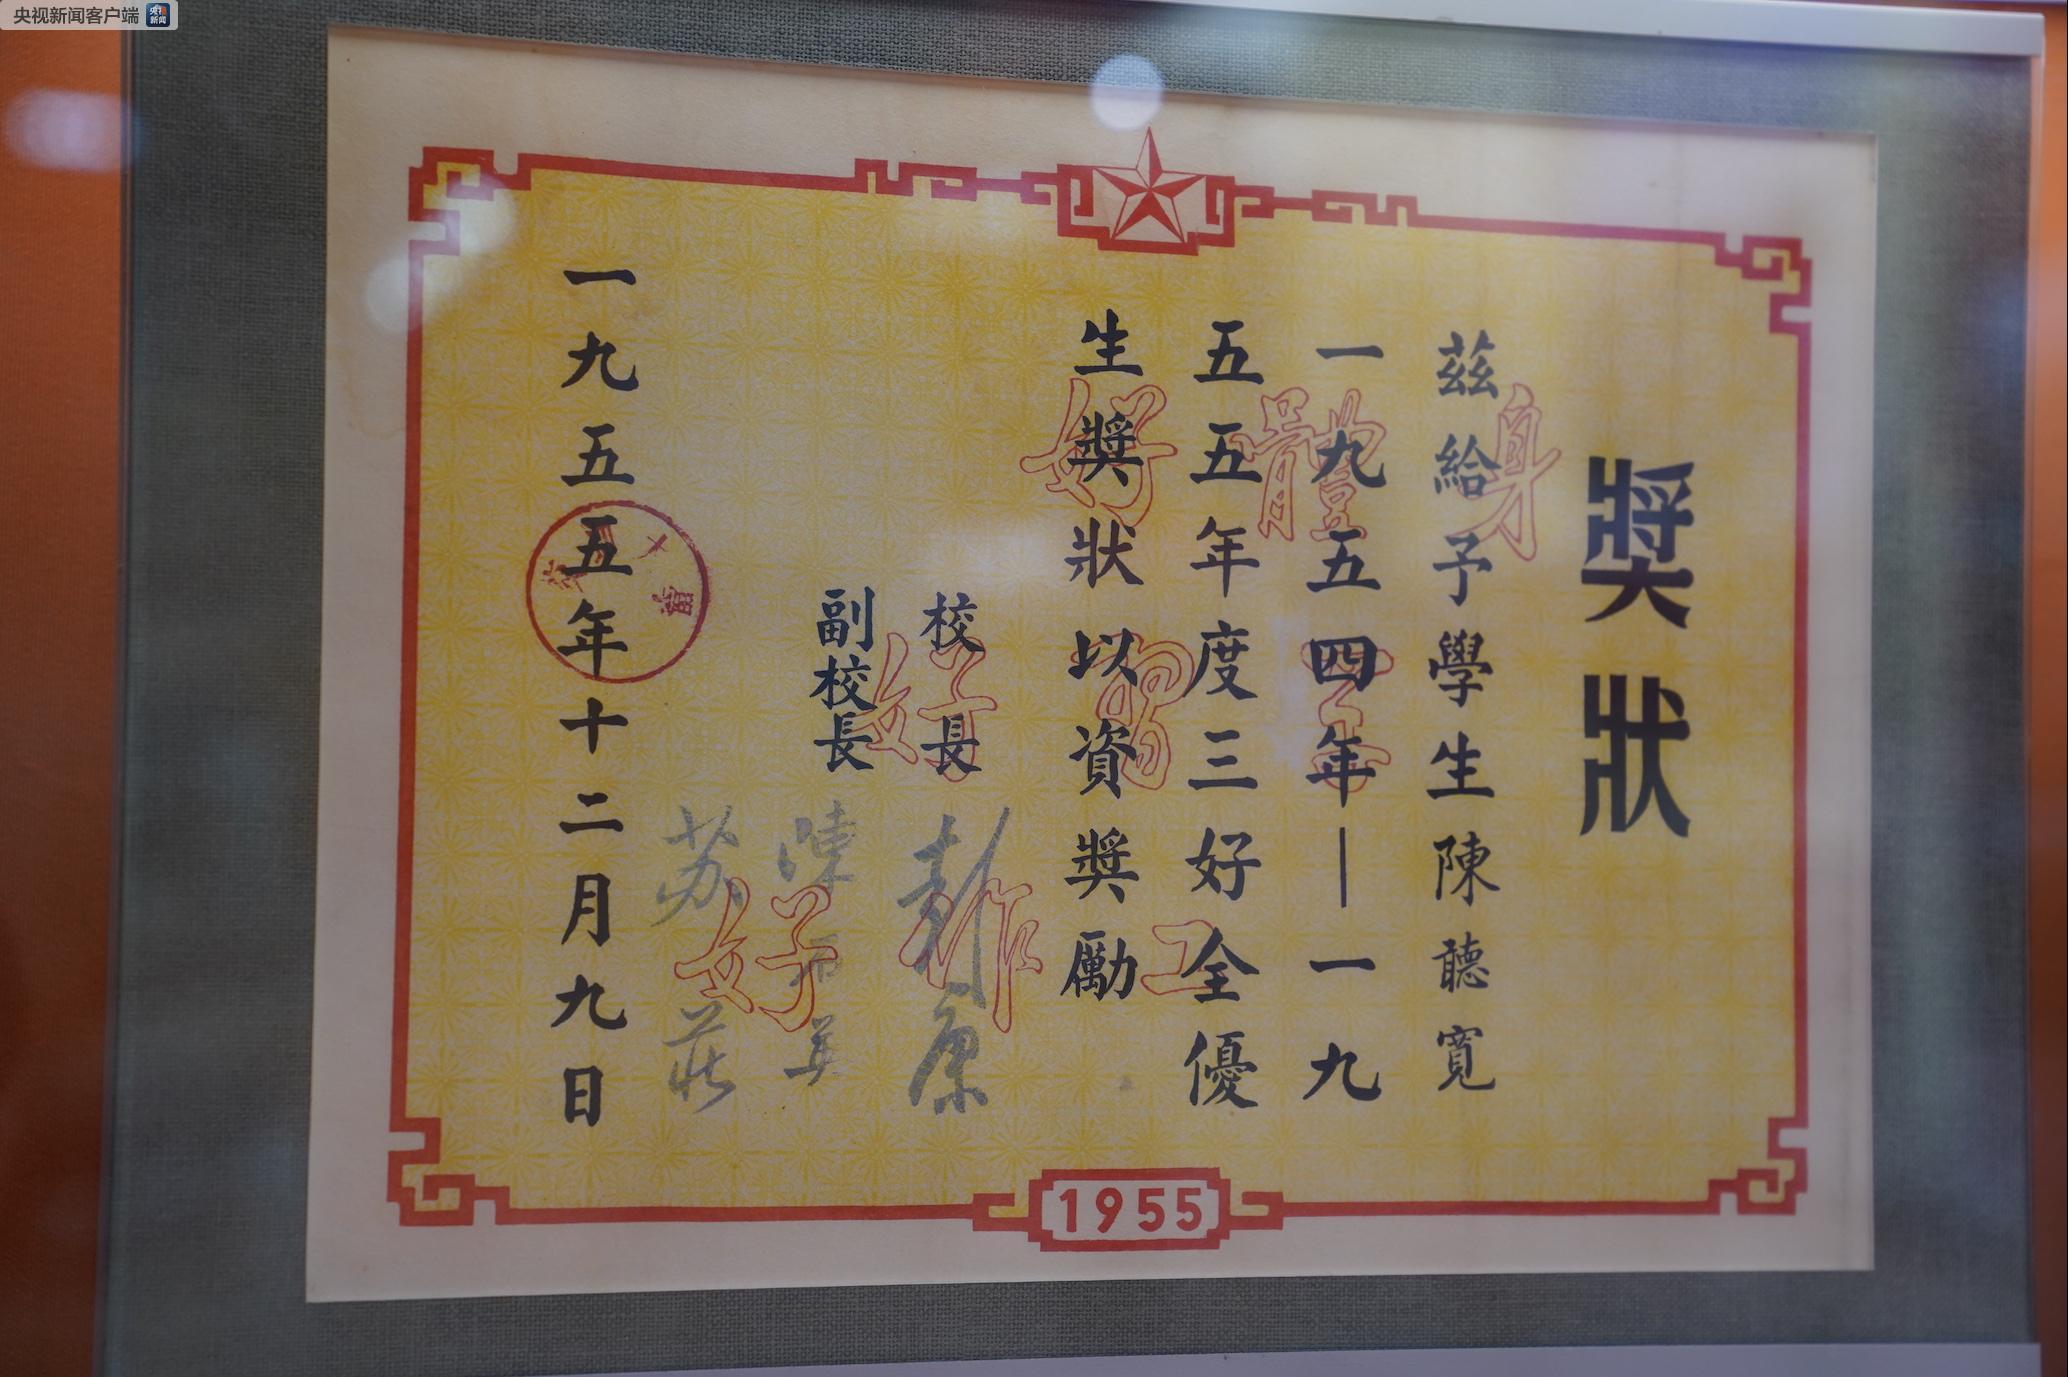 央视新闻客户端
央视
新闻
獎狀
茲給予學生陳聽寬
一九五四年—一九
五五年度三好全優
生獎狀以資獎勵
身體好
學習好
工作好
校長 彭康
副校長 陳吾愚
蘇莊
一九五五年十二月九日
1955